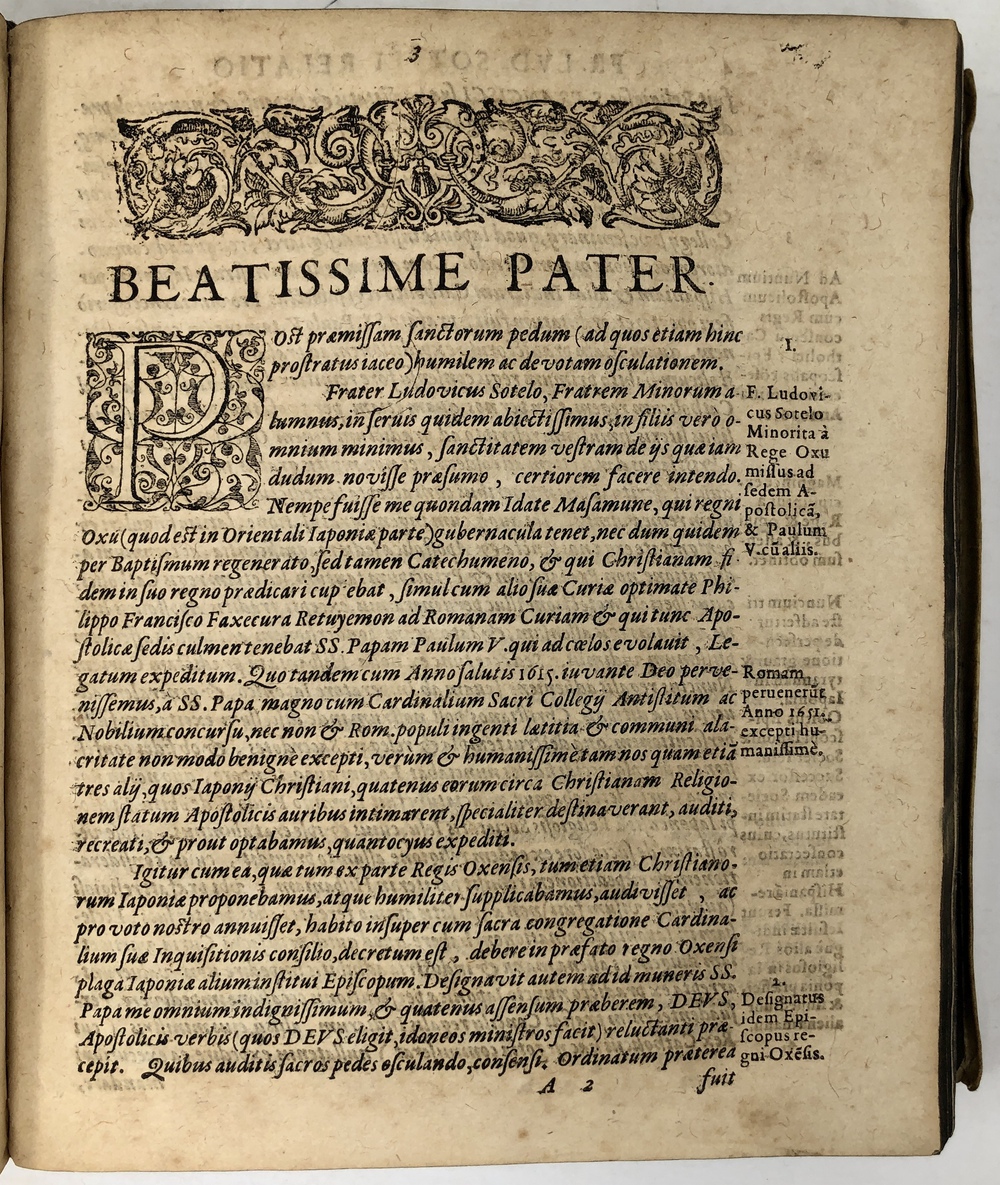 3
BEATISSIME PATER.
POst præmissam sanctorum pedum (ad quos etiam hinc
prostratus iaceo) humilem ac devotam osculationem.
Frater Ludovicus Sotelo, Fratrem Minorum a-
lumnus, in seruis quidem abiectissimus, in filiis verò o-
mnium minimus, sanctitatem vestram de ijs quæ iam
dudum novisse præsumo, certiorem facere intendo.
Nempe fuisse me quondam Idate Masamune, qui regni
Oxu (quod est in Orientali Iaponiæ parte) gubernacula tenet, nec dum quidem
per Baptismum regenerato, sed tamen Catechumeno, & qui Christianam fi
dem in suo regno prædicari cupiebat, simul cum alio suæ Curiæ optimate Phi-
lippo Francisco Faxecura Retuyemon ad Romanam Curiam & qui tunc Apo-
stolicæ sedis culmen tenebat SS. Papam Paulum V. qui ad cœlos evolauit, Le-
gatum expeditum. Quo tandem cum Anno salutis 1615. iuvante Deo perve-
nissemus, à SS. Papa magno cum Cardinalium Sacri Collegij Antistitum ac
Nobilium concursu, nec non & Rom. populi ingenti lætitia & communi ala-
critate non modò benigne excepti, verum & humanissimè tam nos quam etiã
tres alij, quos Iaponij Christiani, quatenus eorum circa Christianam Religio-
nem statum Apostolicis auribus intimarent, specialiter destinaverant, auditi,
recreati, & prout optabamus, quantocyus expediti.
Igitur cum ea, quæ tum ex parte Regis Oxensis, tum etiam Christiano-
rum Iaponiæ proponebamus, atque humiliter supplicabamus, audivisset, ac
pro voto nostro annuisset, habito insuper cum sacra congregatione Cardina-
lium suæ Inquisitionis consilio, decretum est, debere in præfato regno Oxensi
plaga Iaponiæ alium institui Episcopum. Designavit autem ad id muneris SS.
Papa me omnium indignissimum, & quatenus assensum præberem, DEVS,
Apostolicis verbis (quos DEVS eligit, idoneos ministros facit) reluctanti præ-
cepit. Quibus auditis sacros pedes osculando, consensi. Ordinatum præterea
A 2
fuit
1.
F. Ludovi-
cus Sotelo
Minorita à
Rege Oxu
missus ad
sedem A-
postolicã,
& Paulum
V. cũ aliis.
Romam
peruenerũt
Anno 1651.
excepti hu-
manissimè.
2.
Designatus
idem Epi-
scopus re-
gni Oxẽsis.